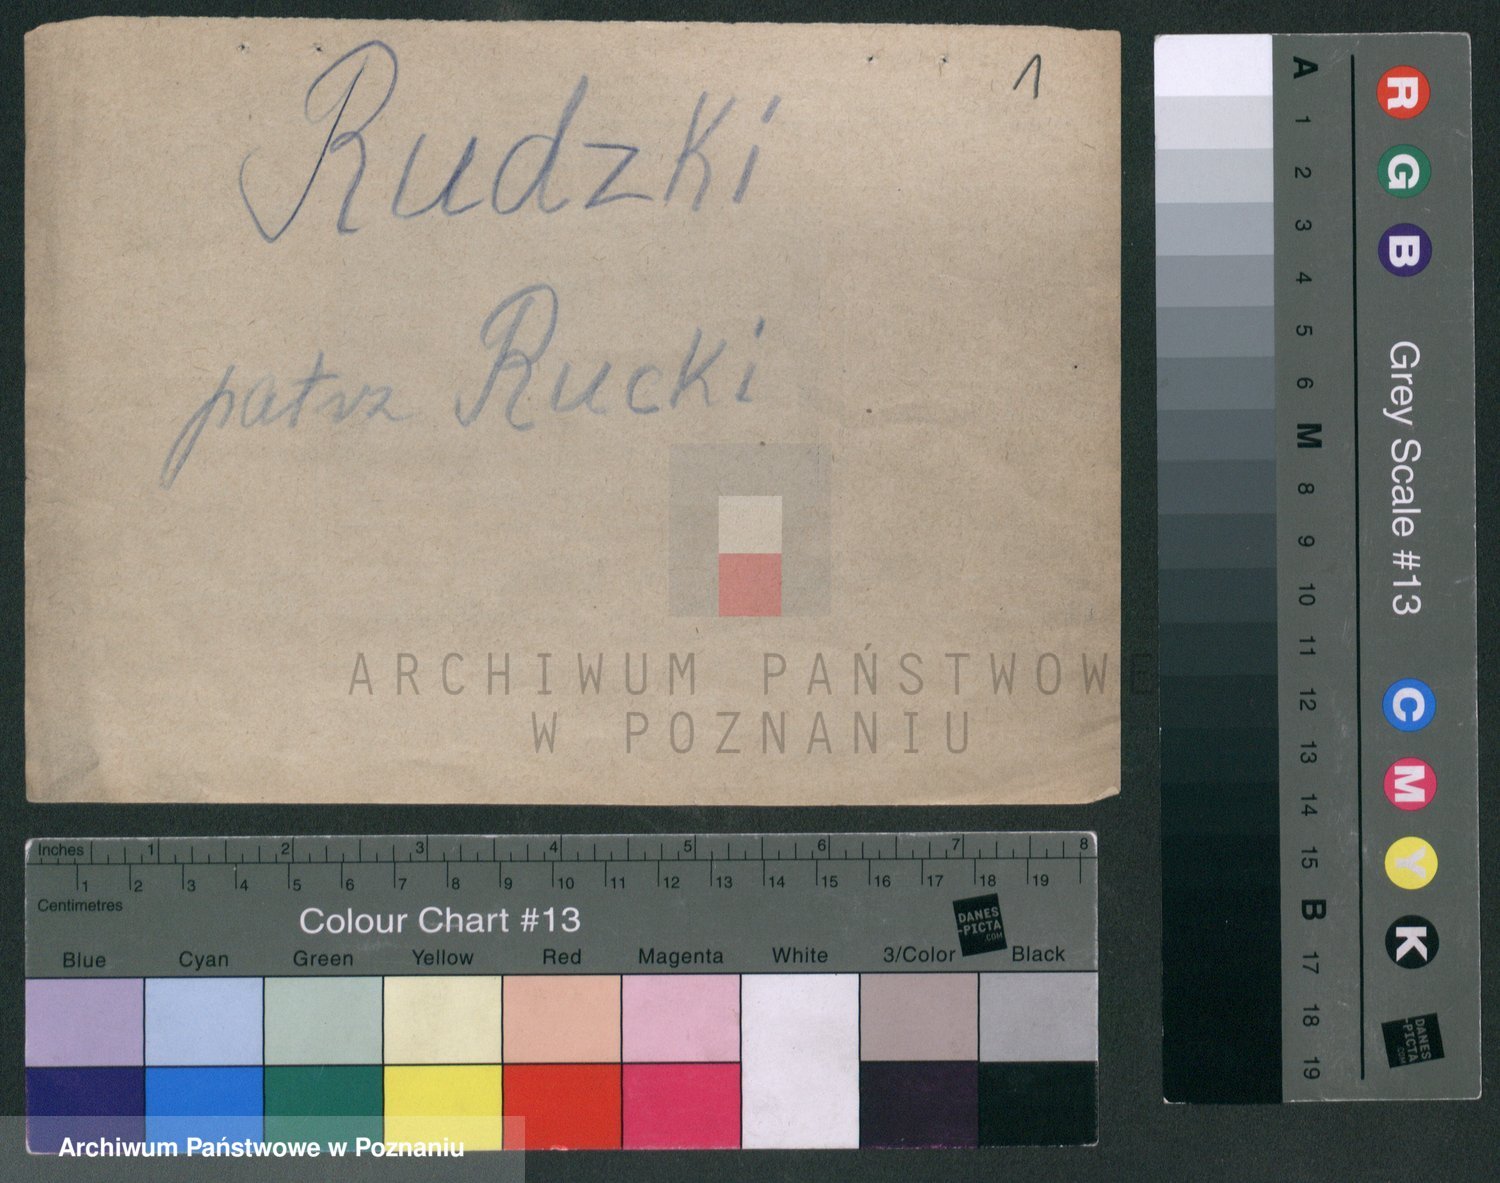 1
Rudzki
patrz Rucki
ARCHIWUM PAŃSTWOWE
W POZNANIU
Inches 1 2 3 4 5 6 7 8
1 2 3 4 5 6 7 8 9 10 11 12 13 14 15 16 17 18 19
Centimetres
Colour Chart #13
DANES
-PICTA
.COM
Blue Cyan Green Yellow Red Magenta White 3/Color Black
Archiwum Państwowe w Poznaniu
A 1 2 3 4 5 6 M 8 9 10 11 12 13 14 15 B 17 18 19
R G B Grey Scale #13 C M Y K
DANES
-PICTA
.COM